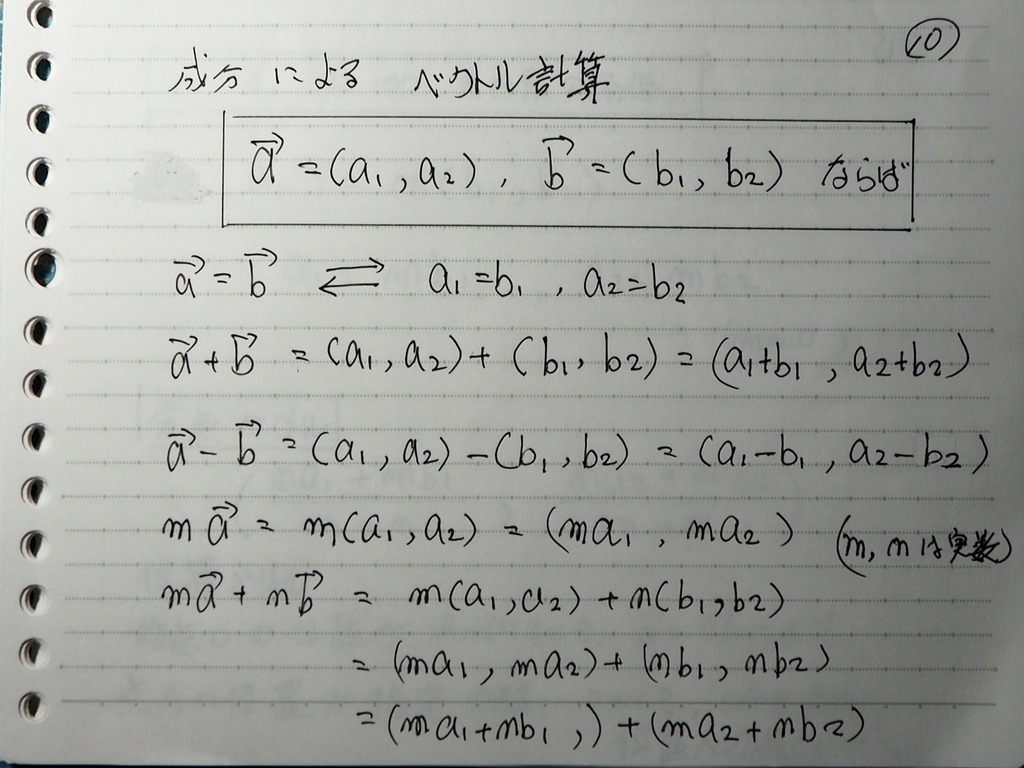 ⑩
成分による ベクトル計算
a⃗ = (a₁, a₂), b⃗ = (b₁, b₂) ならば
a⃗ = b⃗ ⇄ a₁=b₁, a₂=b₂
a⃗ + b⃗ = (a₁, a₂) + (b₁, b₂) = (a₁+b₁, a₂+b₂)
a⃗ - b⃗ = (a₁, a₂) - (b₁, b₂) = (a₁-b₁, a₂-b₂)
m a⃗ = m(a₁, a₂) = (ma₁, ma₂) (m, nは実数)
m a⃗ + n b⃗ = m(a₁, a₂) + n(b₁, b₂)
= (ma₁, ma₂) + (nb₁, nb₂)
= (ma₁+nb₁ ,) + (ma₂+nb₂)